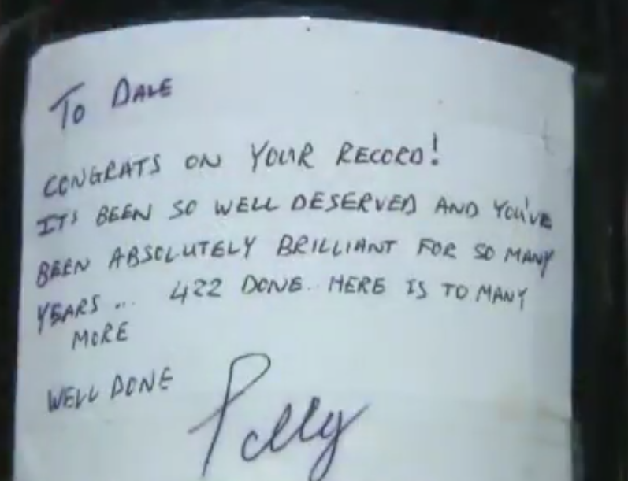 TO DALE
CONGRATS ON YOUR RECORD!
ITS BEEN SO WELL DESERVED AND YOU'VE
BEEN ABSOLUTELY BRILLIANT FOR SO MANY
YEARS ... 422 DONE. HERE IS TO MANY
MORE
WELL DONE
Polly